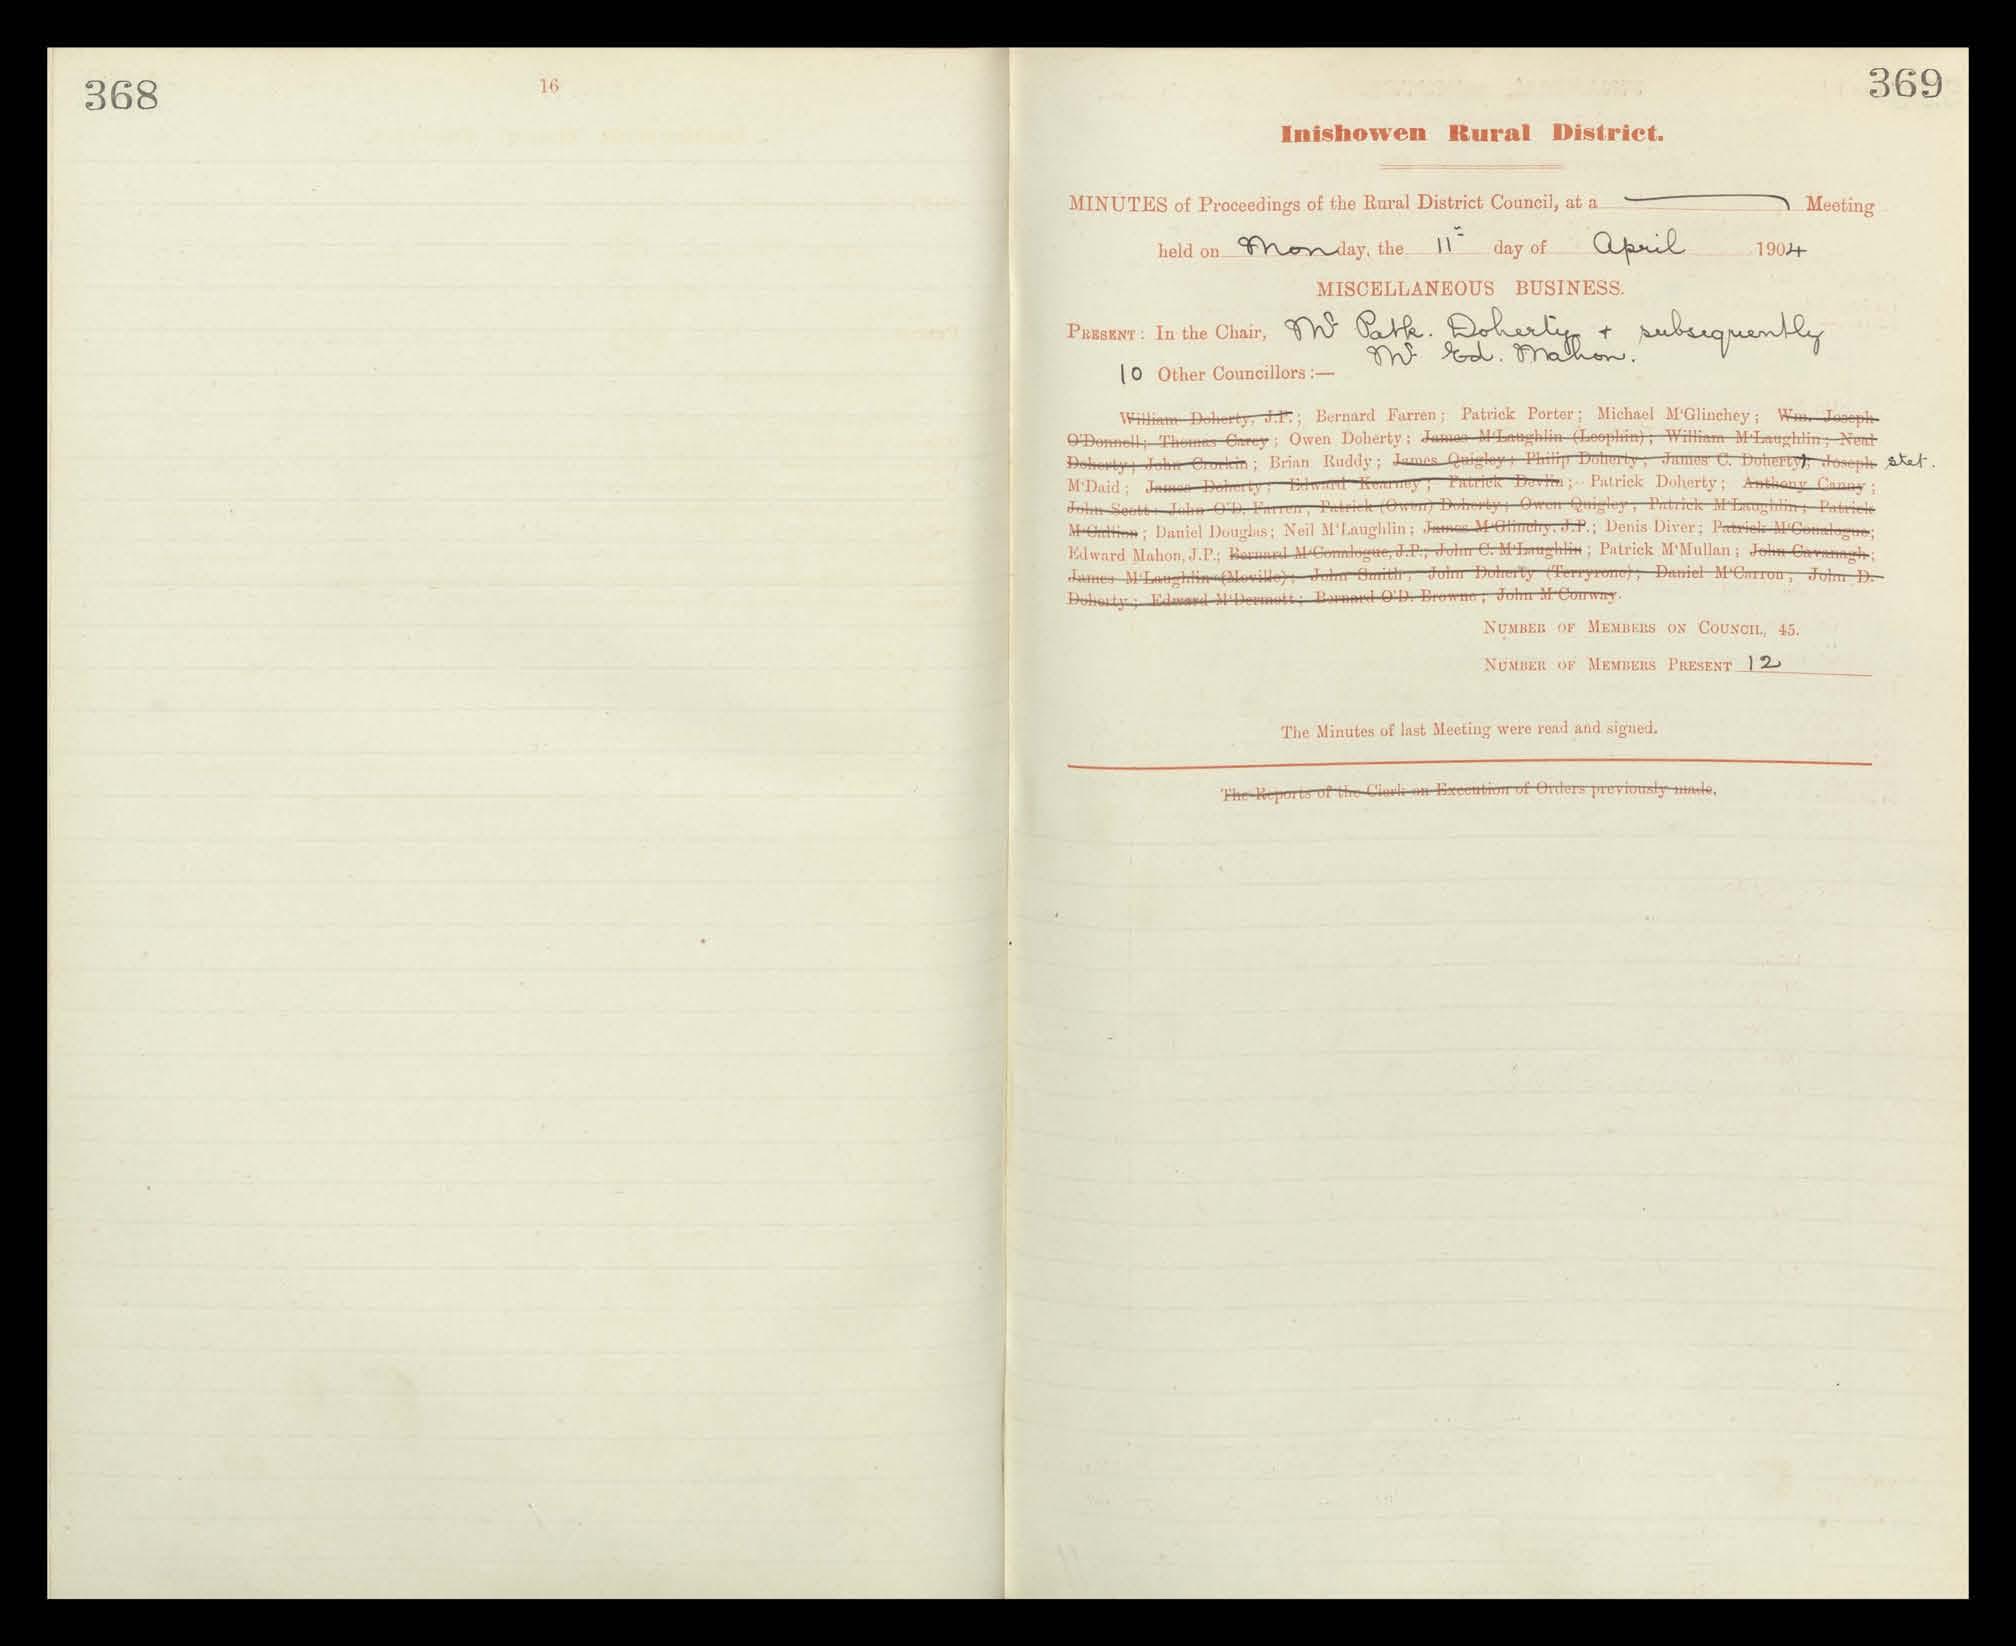 368
16
369
Inishowen Rural District.
MINUTES of Proceedings of the Rural District Council, at a Meeting
held on Monday, the 11th day of April 1904
MISCELLANEOUS BUSINESS.
PRESENT: In the Chair, Mr Patk. Doherty + subsequently
Mr Ed. Mahon.
10 Other Councillors :—
William Doherty, J.P.; Bernard Farren; Patrick Porter; Michael M'Glinchey; Wm. Joseph
O'Donnell; Thomas Carey; Owen Doherty; James M'Laughlin (Leophin); William M'Laughlin; Neal
Doherty; John Crorkin; Brian Ruddy; James Quigley; Philip Doherty; James C. Doherty; Joseph stet.
M'Daid; James Doherty; Edward Kearney; Patrick Devlin; Patrick Doherty; Anthony Canny;
John Scott; John O'D. Farren; Patrick (Owen) Doherty; Owen Quigley; Patrick M'Laughlin; Patrick
M'Callion; Daniel Douglas; Neil M'Laughlin; James M'Glinchy, J.P.; Denis Diver; Patrick M'Conalogue;
Edward Mahon, J.P.; Bernard M'Conalogue, J.P.; John C. M'Laughlin; Patrick M'Mullan; John Cavanagh;
James M'Laughlin (Moville); John Smith; John Doherty (Terryrone); Daniel M'Carron; John D.
Doherty; Edward M'Dermott; Bernard O'D. Browne; John M'Conway.
NUMBER OF MEMBERS ON COUNCIL, 45.
NUMBER OF MEMBERS PRESENT 12
The Minutes of last Meeting were read and signed.
The Reports of the Clerk on Execution of Orders previously made.